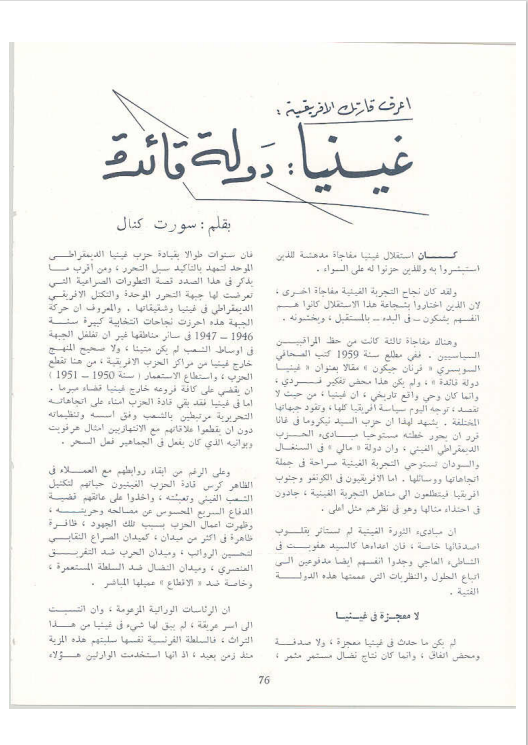 اعرف قارتك الافريقية :
غينيا : دولة قائدة
بقلم : سورت كنال
كـــــان استقلال غينيا مفاجأة مدهشة للذين
استبشروا به وللذين حزنوا له على السواء .
ولقد كان نجاح التجربة الغينية مفاجأة اخرى ،
لان الذين اختاروا بشجاعة هذا الاستقلال كانوا هـم
انفسهم يشكون – فى البدء – بالمستقبل ، ويخشونه .
وهناك مفاجأة ثالثة كانت من حظ المراقبيـن
السياسيين . ففى مطلع سنة 1959 كتب الصحافي
السويسرى « فرنان جيكون » مقالا بعنوان « غينيـا
دولة قائدة » ، ولم يكن هذا محض تفكير فـردى ،
وانما كان وحي واقع تاريخي ، ان غينيا ، من حيث لا
تقصد ، توجه اليوم سياسة افريقيا كلها ، وتقود جبهاتها
المختلفة . يشهد لهذا ان حزب السيد نيكروما فى غانا
قرر ان يحور خطته مستوحيا مبـادىء الحـزب
الديمقراطي الغيني ، وان دولة « مالي » فى السنغـال
والسودان تستوحي التجربة الغينية صراحة فى جملة
اتجاهاتها ووسائلها . اما الافريقيون فى الكونغو وجنوب
افريقيا فيتطلعون الى مناهل التجربة الغينية ، جادون
فى احتذاء مثالها وهو فى نظرهم مثل اعلى .
ان مبادىء الثورة الغينية لم تستأثر بقلـوب
اصدقائها خاصة ، فان اعداءها كالسيد هفويـت فى
الشاطىء العاجي وجدوا انفسهم ايضا مدفوعين الـى
اتباع الحلول والنظريات التى عممتها هذه الدولـة
الفتية .
لا معجزة فى غينيـا
لم يكن ما حدث فى غينيا معجزة ، ولا صدفـة
ومحض اتفاق ، وانما كان نتاج نضال مستمر مثمر ،
فان سنوات طوالا بقيادة حزب غينيا الديمقراطـى
الموحد لتمهد بالتأكيد سبل التحرر ، ومن اقرب مـا
يذكر فى هذا الصدد قصة التطورات الصراعية التـي
تعرضت لها جبهة التحرر الموحدة والتكتل الافريقي
الديمقراطى فى غينيا وشقيقاتها . والمعروف ان حركة
الجبهة هذه احرزت نجاحات انتخابية كبيرة سنـــة
1946 – 1947 فى سائر مناطقها غير ان تغلغل الجبهة
فى اوساط الشعب لم يكن متينا ، ولا صحيح المنهـج
خارج غينيا من مراكز الحزب الافريقية ، من هنا تقطع
الحزب ، واستطاع الاستعمار ( سنة 1950 – 1951 )
ان يقضي على كافة فروعه خارج غينيا قضاء مبرما .
اما فى غينيا فقد بقي قادة الحزب امناء على اتجاهاتـه
التحريرية مرتبطين بالشعب وفق اسسه وتنظيماته
دون ان يقطعوا علاقاتهم مع الانتهازيين امثال هرفويت
وبوانيه الذى كان يفعل فى الجماهير فعل السحر .
وعلى الرغم من ابقاء روابطهم مع العمـلاء فى
الظاهر كرس قادة الحزب الغينيون حياتهم لتكتيل
الشعب الغيني وتعبئته ، واخذوا على عاتقهم قضيـة
الدفاع السريع المحسوس عن مصالحه وحريتـه ،
وظهرت اعمال الحزب بسبب تلك الجهود ، ظافـرة
ظاهرة فى اكثر من ميدان ، كميدان الصراع النقابي
لتحسين الرواتب ، وميدان الحرب ضد التفريــق
العنصري ، وميدان النضال ضد السلطة المستعمرة ،
وخاصة ضد « الاقطاع » عميلها المباشر .
ان الرئاسات الوراثية المزعومة ، وان انتسبـت
الى اسر عريقة ، لم يبق لها شيء فى غينيا من هـذا
التراث ، فالسلطة الفرنسية نفسها سلبتهم هذه المزية
منذ زمن بعيد ، اذ انها استخدمت الوارثين هـؤلاء
76